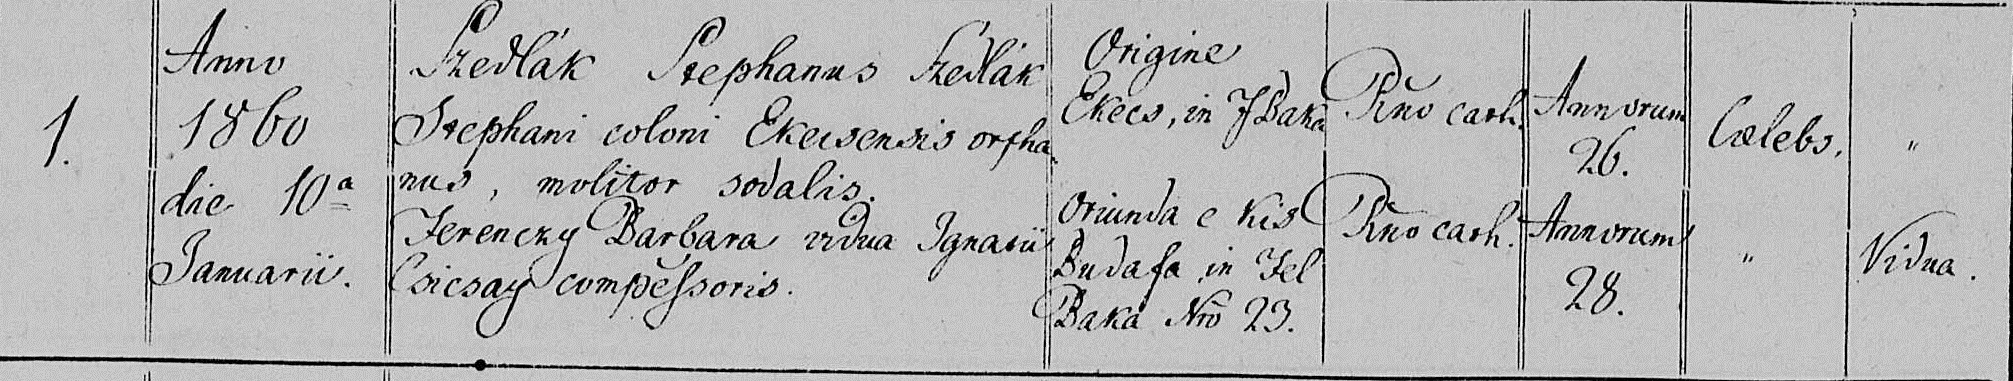 1.
Anno
1860
die 10ª
Januarii.
Szedlák Stephanus Szedlák
Stephani coloni Ekecsensis orpha
nus, molitor sodalis.
Ferenczy Barbara vidua Ignatii
Csicsay compossessoris.
Origine
Ekecs, in F Baka
Oriunda e Kis
Budafa in Fel
Baka Nro 23.
Rno cath.
Rno cath.
Annorum
26.
Annorum
28.
Cælebs.
"
"
Vidua.